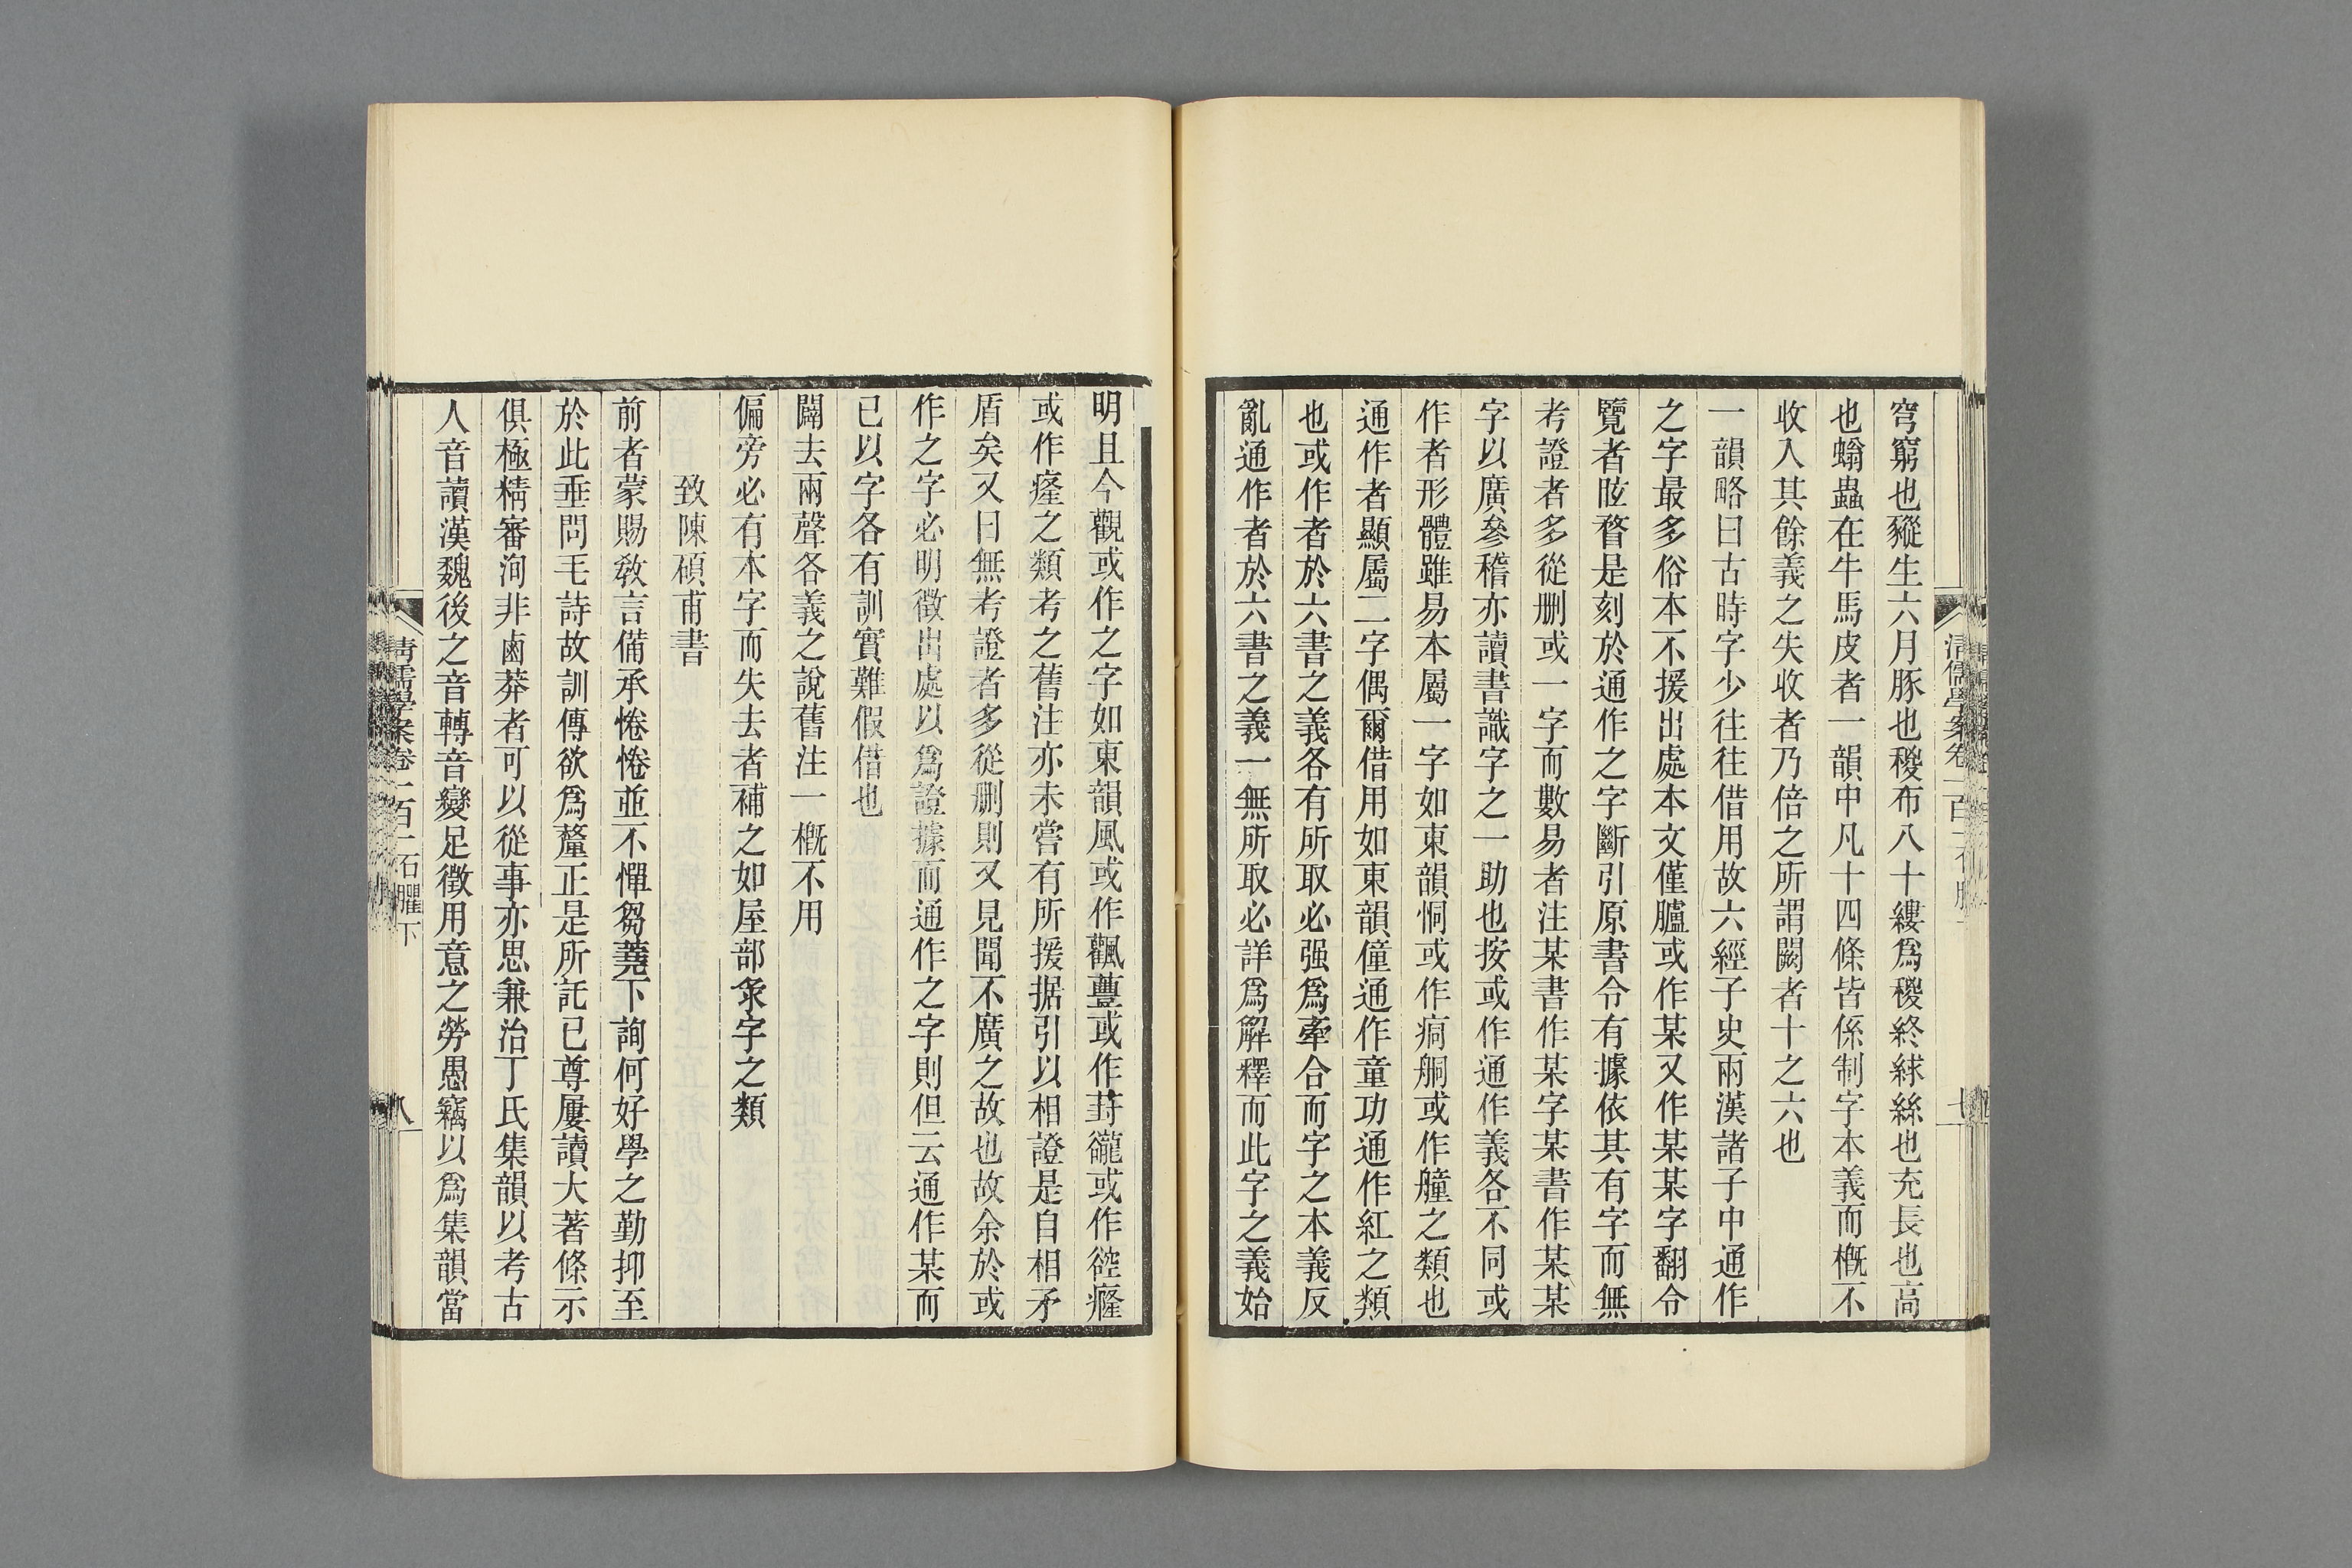 穹窮也豵生六月豚也稯布八十縷爲稯終絿絲也充長也高
也螉蟲在牛馬皮者一韻中凡十四條皆係制字本義而槪不
收入其餘義之失收者乃倍之所謂闕者十之六也
一韻略曰古時字少往往借用故六經子史兩漢諸子中通作
之字最多俗本不援出處本文僅臚或作某又作某某字翻令
覽者眩瞀是刻於通作之字斷引原書令有據依其有字而無
考證者多從删或一字而數易者注某書作某字某書作某某
字以廣參稽亦讀書識字之一助也按或作通作義各不同或
作者形體雖易本屬一字如東韻恫或作痌舸或作艟之類也
通作者顯屬二字偶爾借用如東韻僮通作童功通作紅之類
也或作者於六書之義各有所取必强爲牽合而字之本義反
亂通作者於六書之義一無所取必詳爲解釋而此字之義始
清儒學案卷一百二
七
明且今觀或作之字如東韻風或作飌蘴或作葑龓或作䆍癃
或作㾮之類考之舊注亦未嘗有所援据引以相證是自相矛
盾矣又曰無考證者多從删則又見聞不廣之故也故余於或
作之字必明徵出處以爲證據而通作之字則但云通作某而
已以字各有訓實難假借也
闢去兩聲各義之說舊注一槪不用
偏旁必有本字而失去者補之如屋部彔字之類
致陳碩甫書
前者蒙賜敎言備承惓惓並不憚芻蕘下詢何好學之勤抑至
於此垂問毛詩故訓傳欲爲釐正是所託已尊屢讀大著條示
俱極精審洵非鹵莽者可以從事亦思兼治丁氏集韻以考古
人音讀漢魏後之音轉音變足徵用意之勞愚竊以爲集韻當
清儒學案卷一百二 石臞下
八